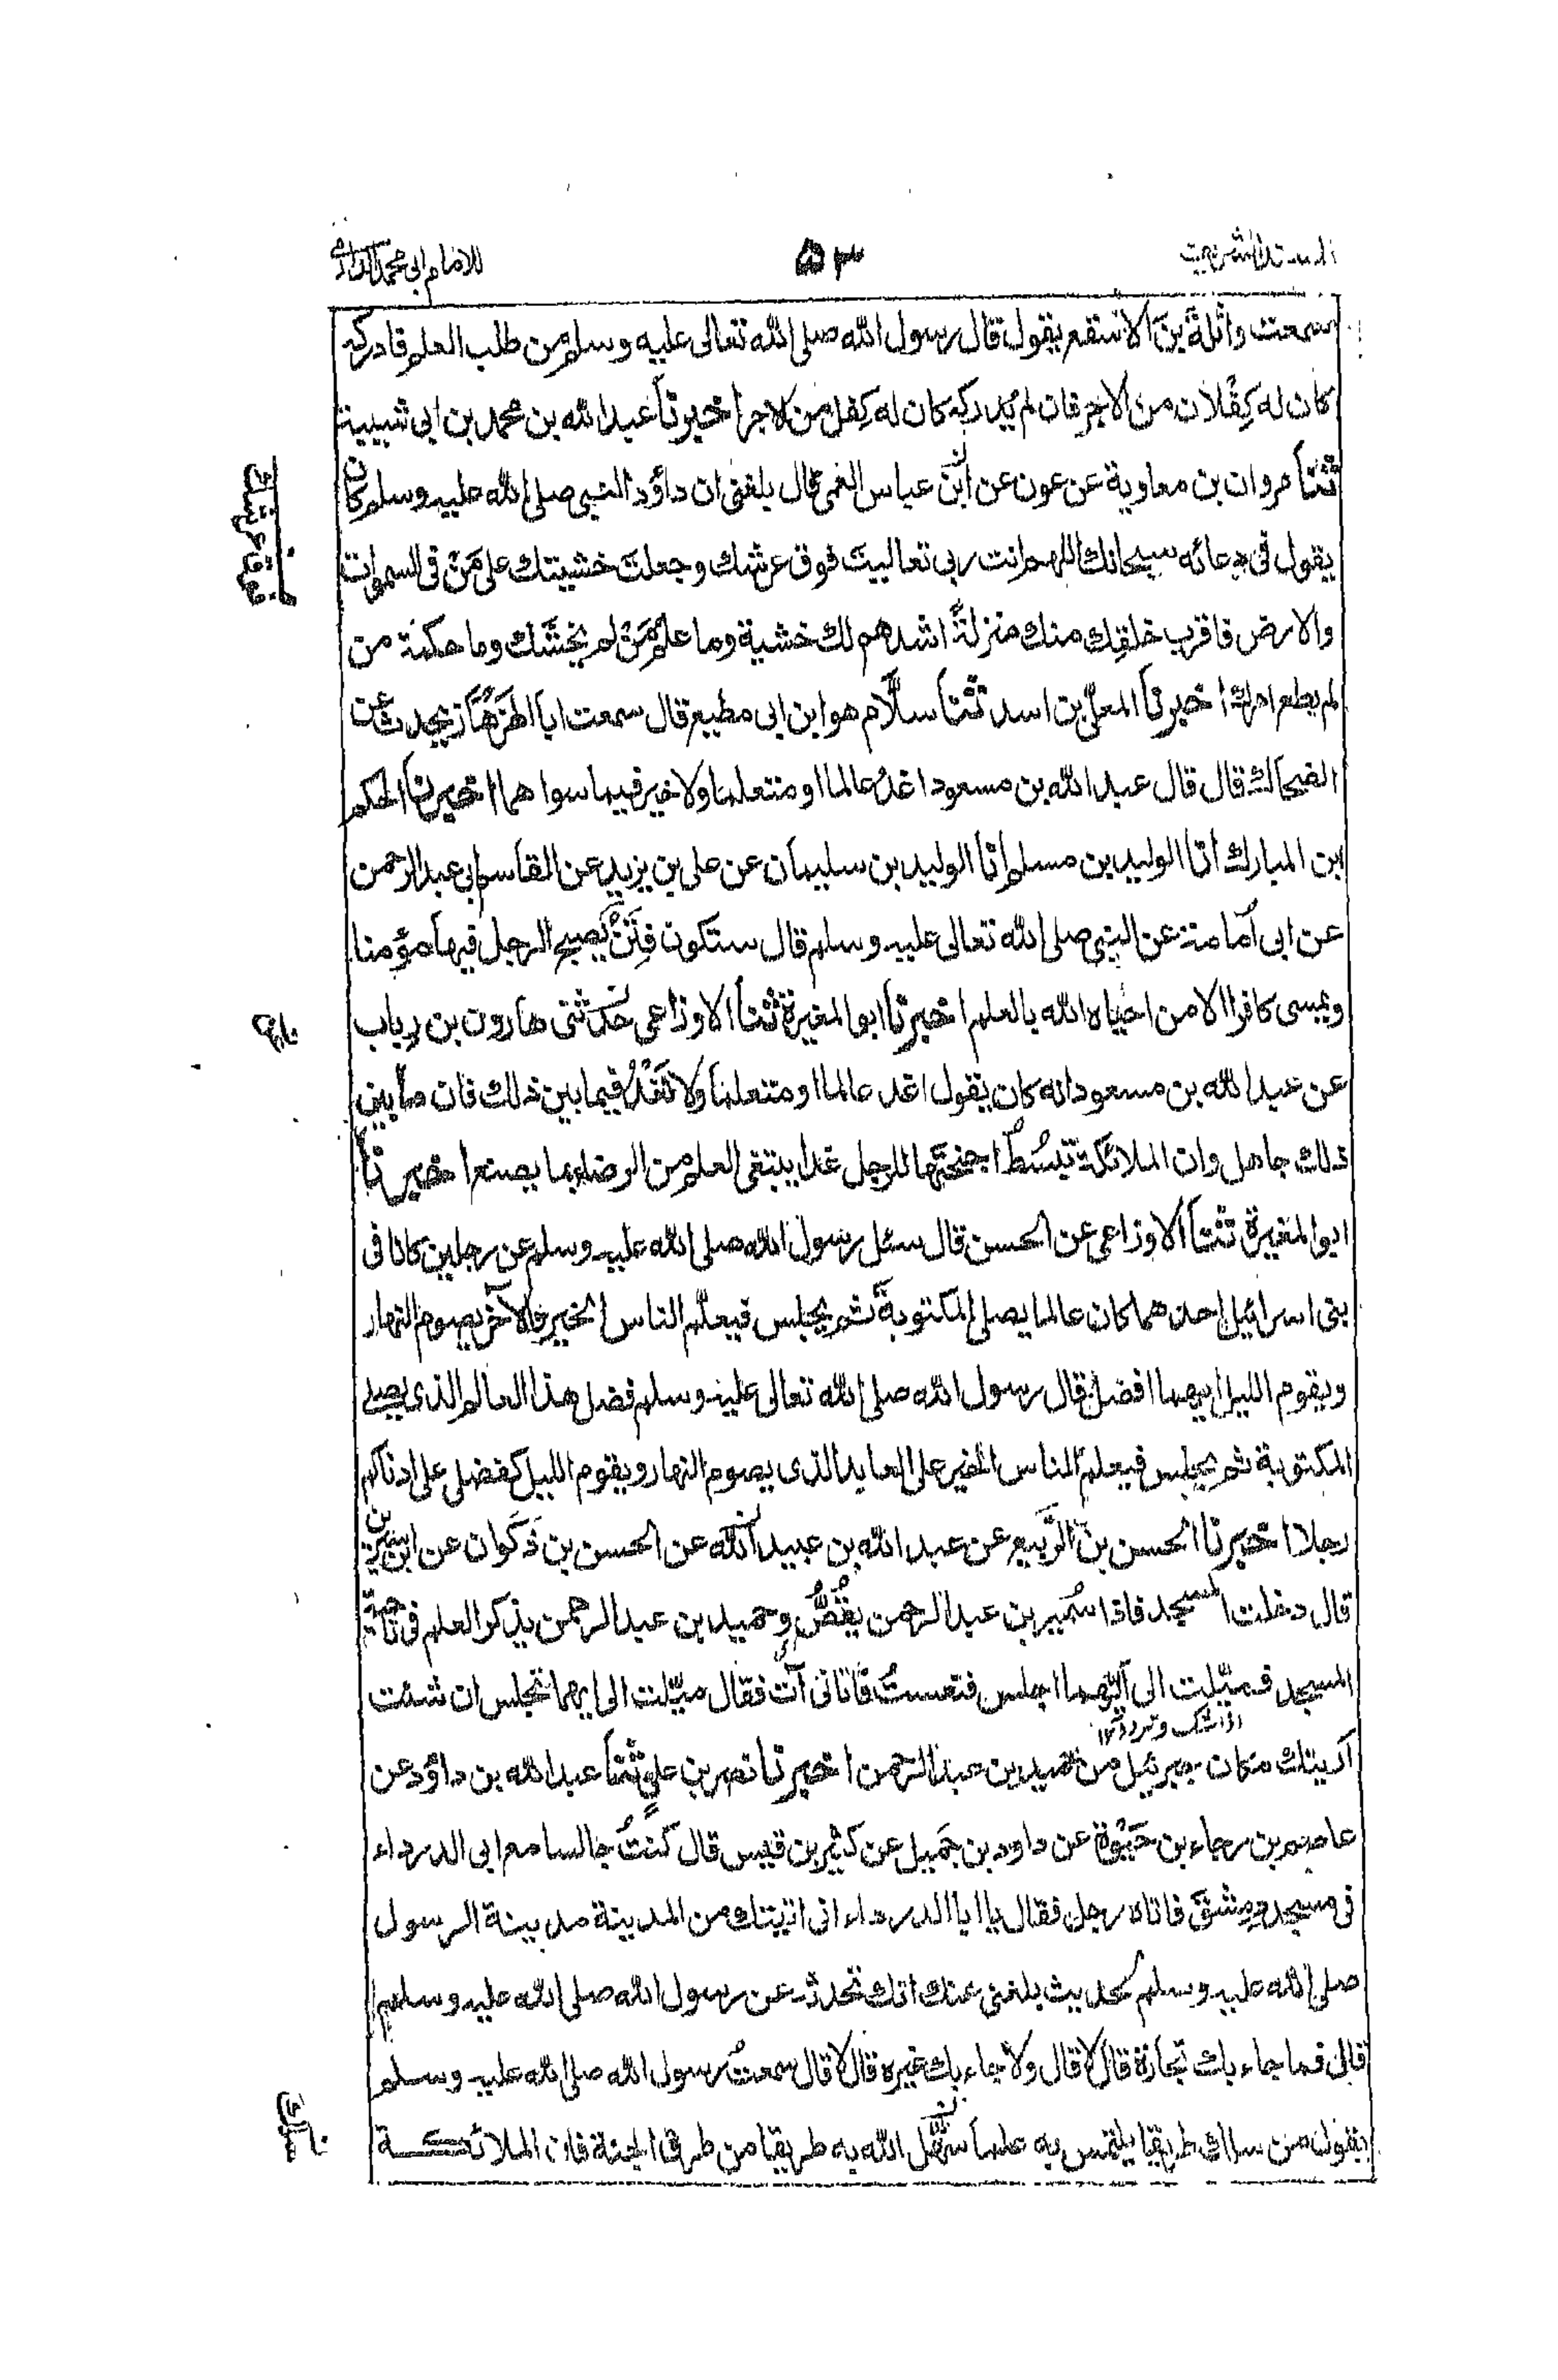 المسند الشريف ٥٣ للامام ابى محمد الدارمى
سمعت واثلة بن الاسقع يقول قال رسول الله صلى الله تعالى عليه وسلم من طلب العلم فادركه
كان له كِفْلان من الاجر فان لم يُدركه كان له كِفل من الاجر اخبرنا عبد الله بن محمد بن ابى شيبة
ثنا مروان بن معاوية عن عون عن ابن عباس العمى قال بلغنى ان داؤد النبى صلى الله عليه وسلم كان
يقول فى دعائه سبحانك اللهم انت ربى تعاليت فوق عرشك وجعلت خشيتك على مَنْ فى السموات
والارض فاقرب خلقِك منك منزلةً اشدهم لك خشية وما علم مَنْ لم يخشَك وما حكمة من
لم يطع امرك اخبرنا المعلّى بن اسد ثنا سلّام هو ابن ابى مطيع قال سمعت ابا الهَزْهاز يحدث عن
الضحاك قال قال عبد الله بن مسعود اغدُ عالما او متعلما ولا خير فيما سواهما اخبرنا الحكم
ابن المبارك انا الوليد بن مسلم انا الوليد بن سليمان عن على بن يزيد عن القاسم ابى عبد الرحمن
عن ابى اُمامة عن النبى صلى الله تعالى عليه وسلم قال ستكون فِتَنٌ يُصبح الرجل فيها مؤمنا
ويمسى كافرا الا من احياه الله بالعلم اخبرنا ابو المغيرة ثنا الاوزاعى حدثنى هارون بن رياب
عن عبد الله بن مسعود انه كان يقول اغد عالما او متعلما ولا تَغْدُ فيما بين ذلك فان ما بين
ذلك جاهل وان الملائكة تبسُطُ اجنحتها للرجل غدا يبتغى العلم من الرضاء بما يصنع اخبرنا
ابو المغيرة ثنا الاوزاعى عن الحسن قال سئل رسول الله صلى الله عليه وسلم عن رجلين كانا فى
بنى اسرائيل احدهما كان عالما يصلى المكتوبة ثم يجلس فيعلّم الناس الخير والآخر يصوم النهار
ويقوم الليل ايهما افضل قال رسول الله صلى الله تعالى عليه وسلم فضل هذا العالم الذى يصلى
المكتوبة ثم يجلس فيعلم الناس الخير على العابد الذى يصوم النهار ويقوم الليل كفضلى على ادناكم
رجلا اخبرنا الحسن بن الرَّبيع عن عبد الله بن عبيد الله عن الحسن بن ذَكوان عن ابن سيرين
قال دخلت المسجد فاذا سُمير بن عبد الرحمن يقُصُّ وحميد بن عبد الرحمن يذكر العلم فى ناحية
المسجد فميّلت الى ايّهما اجلس فنعستُ فاتانى آت فقال ميّلت الى ايهما تجلس ان شئت
اذا شك وتردد ١٢
اريتك مكان جبرئيل من حُميد بن عبد الرحمن اخبرنا نصر بن علىٍّ ثنا عبد الله بن داؤد عن
عاصم بن رجاء بن حَيْوة عن داود بن جَميل عن كثير بن قيس قال كنتُ جالسا مع ابى الدرداء
فى مسجد دِمِشْقَ فاتاه رجل فقال يا ابا الدرداء انى اتيتك من المدينة مدينة الرسول
صلى الله عليه وسلم لحديث بلغنى عنك انك تحدثه عن رسول الله صلى الله عليه وسلم
قال فما جاء بك تجارة قال لا قال ولا جاء بك غيره قال لا قال سمعتُ رسول الله صلى الله عليه وسلم
يقول من سلك طريقا يلتمس به علما سهّل الله به طريقا من طرق الجنة فان الملائكة